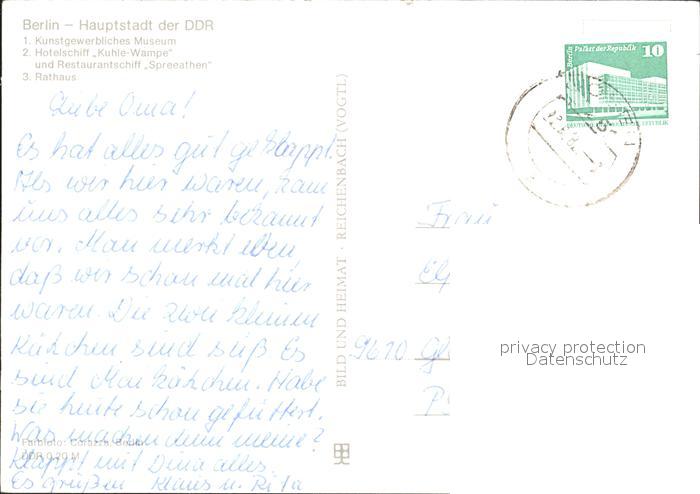 Berlin – Hauptstadt der DDR
1. Kunstgewerbliches Museum
2. Hotelschiff „Kuhle-Wampe“
und Restaurantschiff „Spreeathen“
3. Rathaus
Berlin Palast der Republik 10
Liebe Oma!
Es hat alles gut geklappt.
Als wir hier waren, kam
uns alles sehr bekannt
vor. Man merkt eben,
daß wir schon mal hier
waren. Die zwei kleinen
Kätzchen sind süß. Es
sind Maikätzchen. Habe
sie heute schon gefüttert.
Was machen denn meine?
Klappt mit Dina alles.
Es grüßen Klaus u. Rita
BILD UND HEIMAT · REICHENBACH (VOGTL)
Frau
9610
privacy protection
Datenschutz
Farbfoto: Corazza, Berlin
DDR 0,20 M